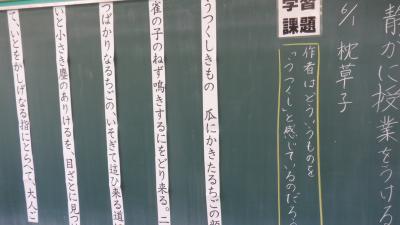 静かに授業をうける
6/1 枕草子
学習
課題
作者はどういうものを
「うつくし」と感じているのだろう
うつくしきもの 瓜にかきたるちごの顔
雀の子のねず鳴きするにをどり来る。二
つばかりなるちごの、いそぎて這ひ来る道
いと小さき塵のありけるを、目ざとに見つ
ていとをかしげなる指にとらへて、大人ご